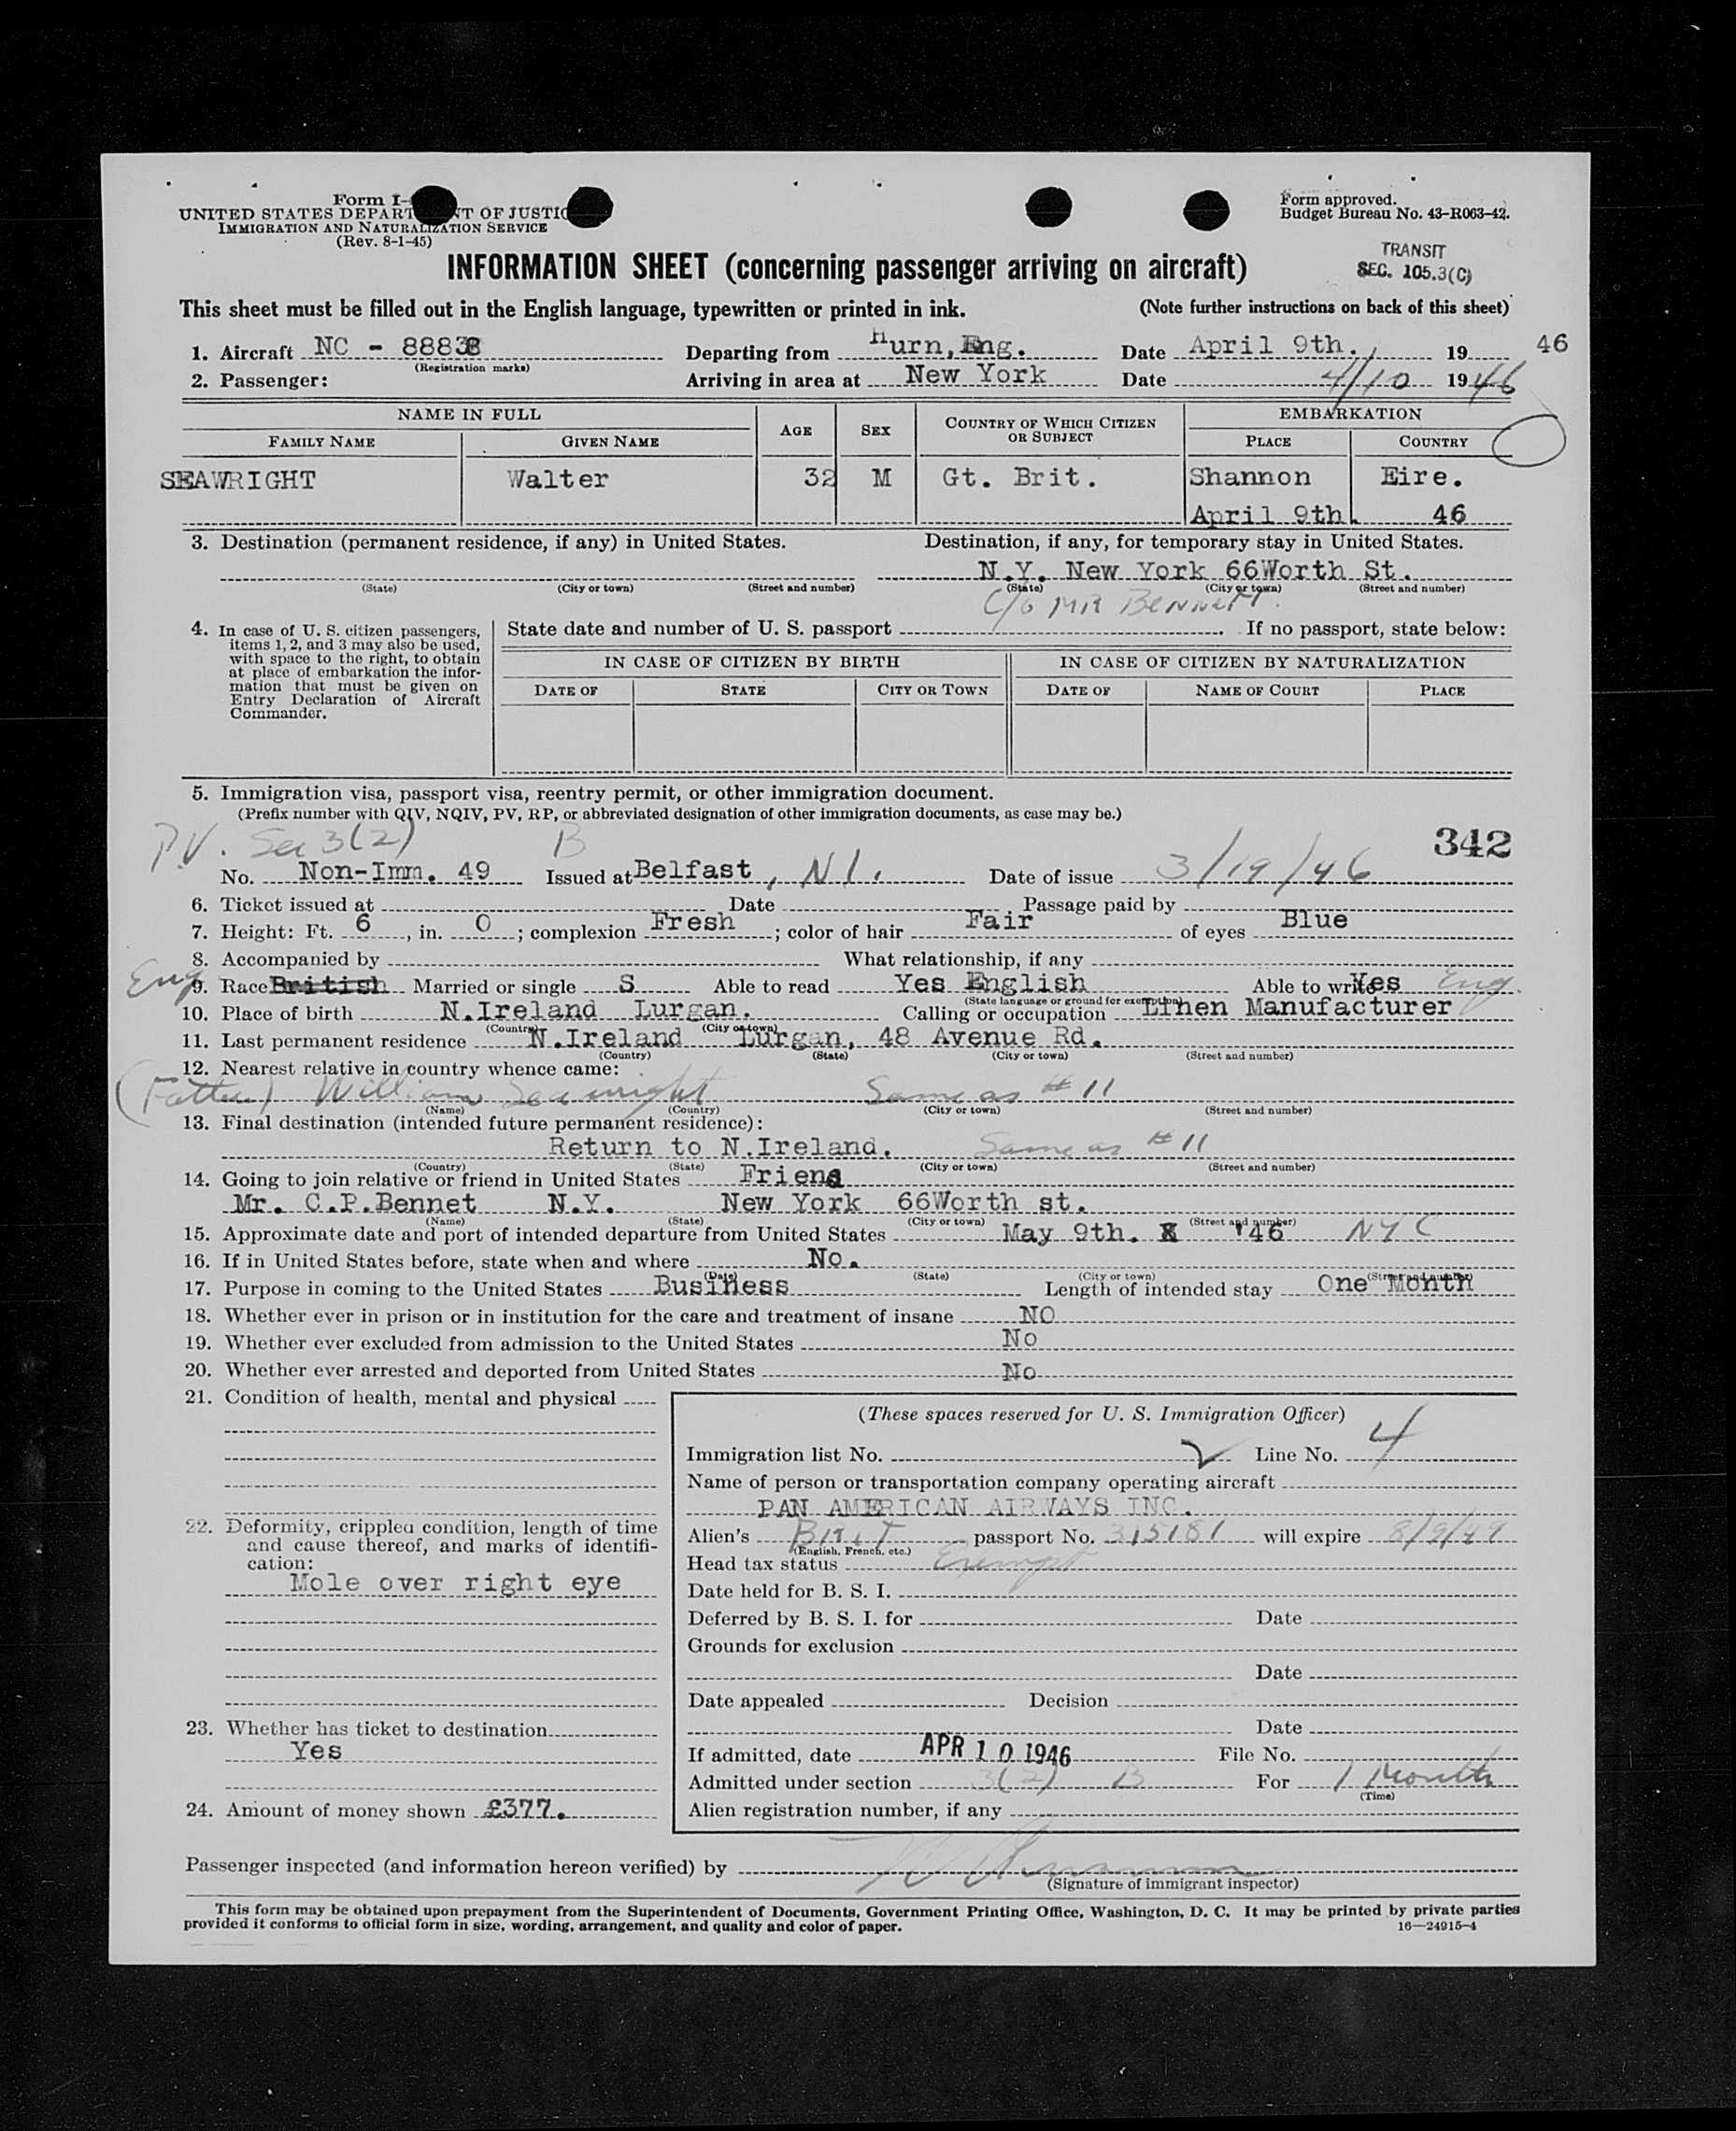 Form I-
UNITED STATES DEPARTMENT OF JUSTICE
IMMIGRATION AND NATURALIZATION SERVICE
(Rev. 8-1-45)
Form approved.
Budget Bureau No. 43-R063-42.
TRANSIT
SEC. 105.3(C)
INFORMATION SHEET (concerning passenger arriving on aircraft)
This sheet must be filled out in the English language, typewritten or printed in ink. (Note further instructions on back of this sheet)
1. Aircraft NC - 8883 Departing from Hurn, Eng. Date April 9th. 19 46
(Registration marks)
2. Passenger: Arriving in area at New York Date 4/10 1946
NAME IN FULL AGE SEX COUNTRY OF WHICH CITIZEN OR SUBJECT EMBARKATION
FAMILY NAME GIVEN NAME PLACE COUNTRY
SEAWRIGHT Walter 32 M Gt. Brit. Shannon Eire.
April 9th. 46
3. Destination (permanent residence, if any) in United States. Destination, if any, for temporary stay in United States.
N.Y. New York 66Worth St.
(State) (City or town) (Street and number) (State) (City or town) (Street and number)
C/o MR BENNETT.
4. In case of U. S. citizen passengers, items 1, 2, and 3 may also be used, with space to the right, to obtain at place of embarkation the information that must be given on Entry Declaration of Aircraft Commander.
State date and number of U. S. passport . If no passport, state below:
IN CASE OF CITIZEN BY BIRTH IN CASE OF CITIZEN BY NATURALIZATION
DATE OF STATE CITY OR TOWN DATE OF NAME OF COURT PLACE
5. Immigration visa, passport visa, reentry permit, or other immigration document.
(Prefix number with QIV, NQIV, PV, RP, or abbreviated designation of other immigration documents, as case may be.)
P.V. Sec 3(2) B 342
No. Non-Imm. 49 Issued at Belfast, N I. Date of issue 3/19/46
6. Ticket issued at Date Passage paid by
7. Height: Ft. 6, in. 0; complexion Fresh; color of hair Fair of eyes Blue
8. Accompanied by What relationship, if any
Eng 9. Race British Married or single S Able to read Yes English Able to write Yes Eng.
(State language or ground for exemption)
10. Place of birth N.Ireland Lurgan. Calling or occupation Linen Manufacturer
(Country) (City or town)
11. Last permanent residence N.Ireland Lurgan, 48 Avenue Rd.
(Country) (State) (City or town) (Street and number)
12. Nearest relative in country whence came:
(Father) William Seawright Same as # 11
(Name) (Country) (City or town) (Street and number)
13. Final destination (intended future permanent residence):
Return to N.Ireland. Same as # 11
(Country) (State) (City or town) (Street and number)
14. Going to join relative or friend in United States Friend
Mr. C.P.Bennet N.Y. New York 66Worth st.
(Name) (State) (City or town) (Street and number)
15. Approximate date and port of intended departure from United States May 9th. '46 NYC
16. If in United States before, state when and where No.
(Date) (State) (City or town) (Street and number)
17. Purpose in coming to the United States Business Length of intended stay One Month
18. Whether ever in prison or in institution for the care and treatment of insane NO
19. Whether ever excluded from admission to the United States No
20. Whether ever arrested and deported from United States No
21. Condition of health, mental and physical
22. Deformity, crippled condition, length of time and cause thereof, and marks of identification:
Mole over right eye
23. Whether has ticket to destination
Yes
24. Amount of money shown £377.
(These spaces reserved for U. S. Immigration Officer)
Immigration list No. 2 Line No. 4
Name of person or transportation company operating aircraft
PAN AMERICAN AIRWAYS INC.
Alien's BRIT passport No. 315181 will expire 8/9/49
(English, French, etc.)
Head tax status Exempt
Date held for B. S. I.
Deferred by B. S. I. for Date
Grounds for exclusion
Date
Date appealed Decision
Date
If admitted, date APR 10 1946 File No.
Admitted under section 3(2) B For 1 Month
(Time)
Alien registration number, if any
Passenger inspected (and information hereon verified) by
(Signature of immigrant inspector)
This form may be obtained upon prepayment from the Superintendent of Documents, Government Printing Office, Washington, D. C. It may be printed by private parties
provided it conforms to official form in size, wording, arrangement, and quality and color of paper. 16—24915-4